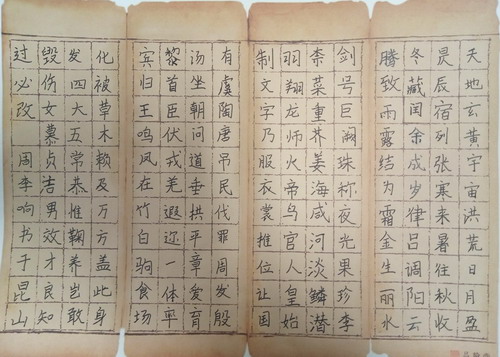 天地玄黄宇宙洪荒日月盈
昃辰宿列张寒来暑往秋收
冬藏闰余成岁律吕调阳云
腾致雨露结为霜金生丽水
剑号巨阙珠称夜光果珍李
柰菜重芥姜海咸河淡鳞潜
羽翔龙师火帝鸟官人皇始
制文字乃服衣裳推位让国
有虞陶唐吊民伐罪周发殷
汤坐朝问道垂拱平章爱育
黎首臣伏戎羌遐迩一体率
宾归王鸣凤在竹白驹食场
化被草木赖及万方盖此身
发四大五常恭惟鞠养岂敢
毁伤女慕贞洁男效才良知
过必改 周李响书于昆山